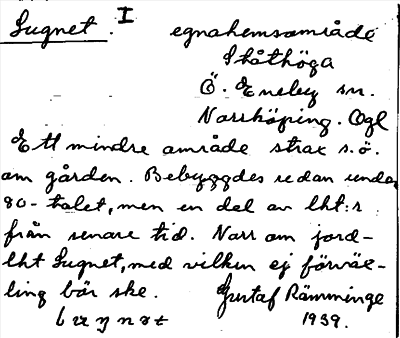 Lugnet. I egnahemsområde
Skåthöga
Ö. Eneby sn.
Norrköping. Ögl
Ett mindre område strax s.ö.
om gården. Bebyggdes redan under
80-talet, men en del av lht:r
från senare tid. Norr om jord-
lht Lugnet, med vilken ej förväx-
ling bör ske. Gustaf Ränninge
1939.